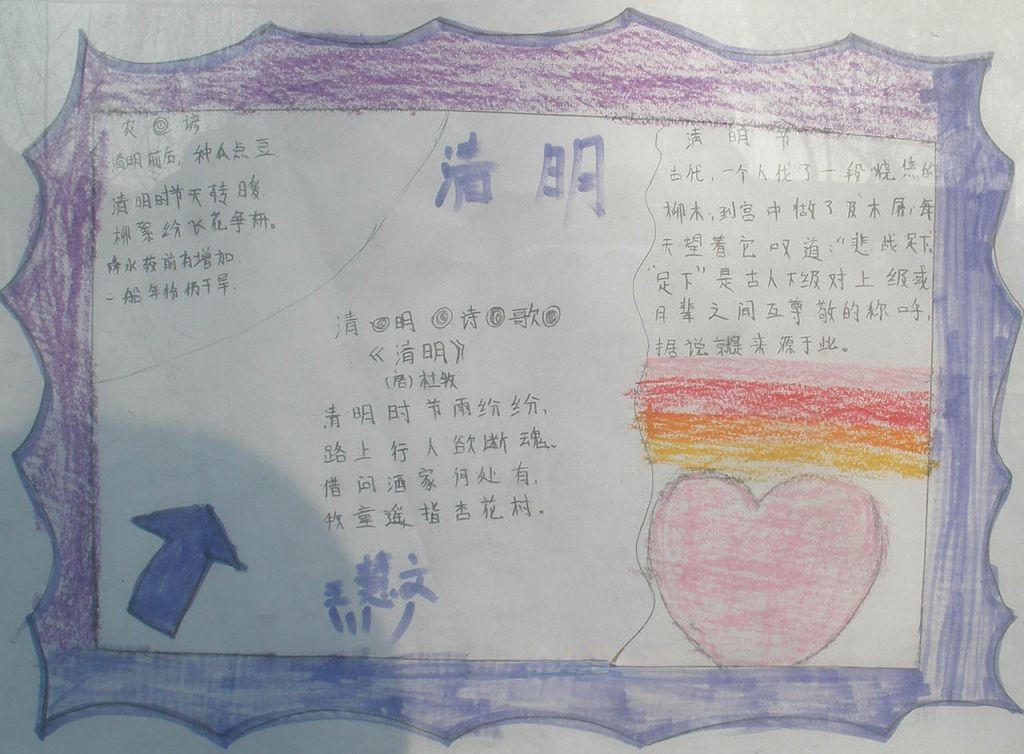 农 谚
清明前后，种瓜点豆
清明时节天转暖
柳絮纷飞花争妍。
降水较前有增加
一般年份仍干旱.
清 明
清 明 诗 歌
《清明》
(唐)杜牧
清明时节雨纷纷，
路上行人欲断魂。
借问酒家何处有，
牧童遥指杏花村。
慧文
清 明 节
古代，一个人找了一段烧焦的
柳木，到宫中做了双木屐，每
天望着它叹道："悲哉足下
"足下"是古人下级对上级或
月辈之间互尊敬的称呼，
据说就是来源于此。